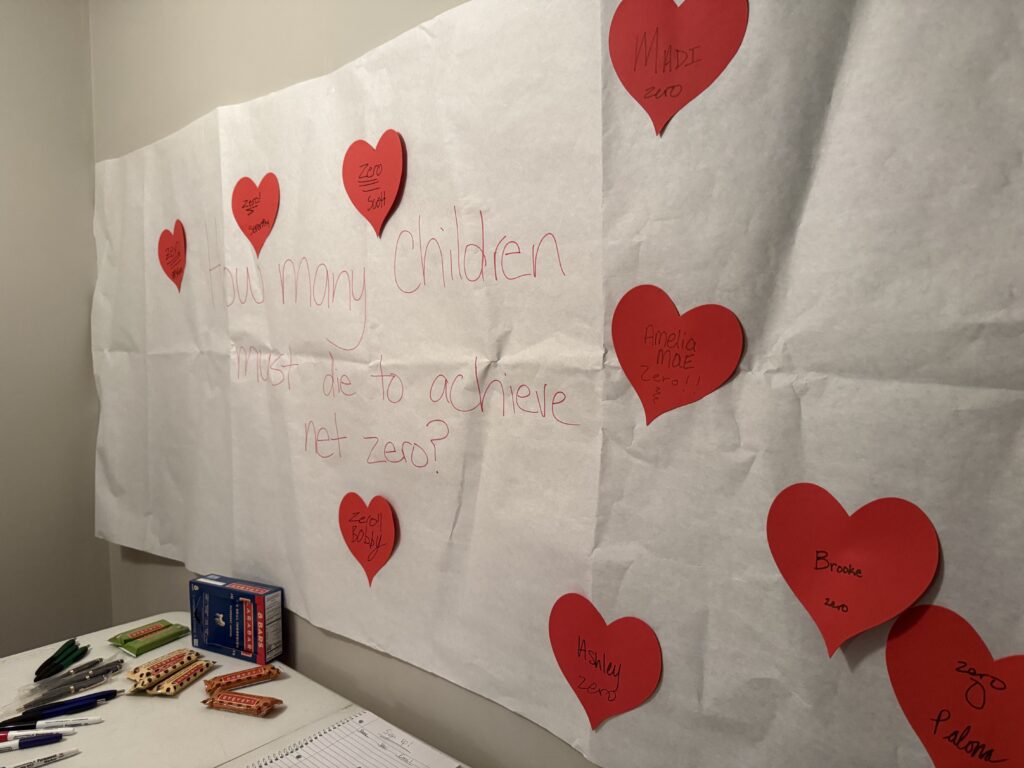 MADI
zero
Zero
Scott
Zero!
Serenity
Zero
How many children
must die to achieve
net zero?
Amelia
MAE
Zero!!
Zero!!
Bobby
Brooke
zero
Ashley
zero
zero
Paloma
LÄRABAR
8 BARS